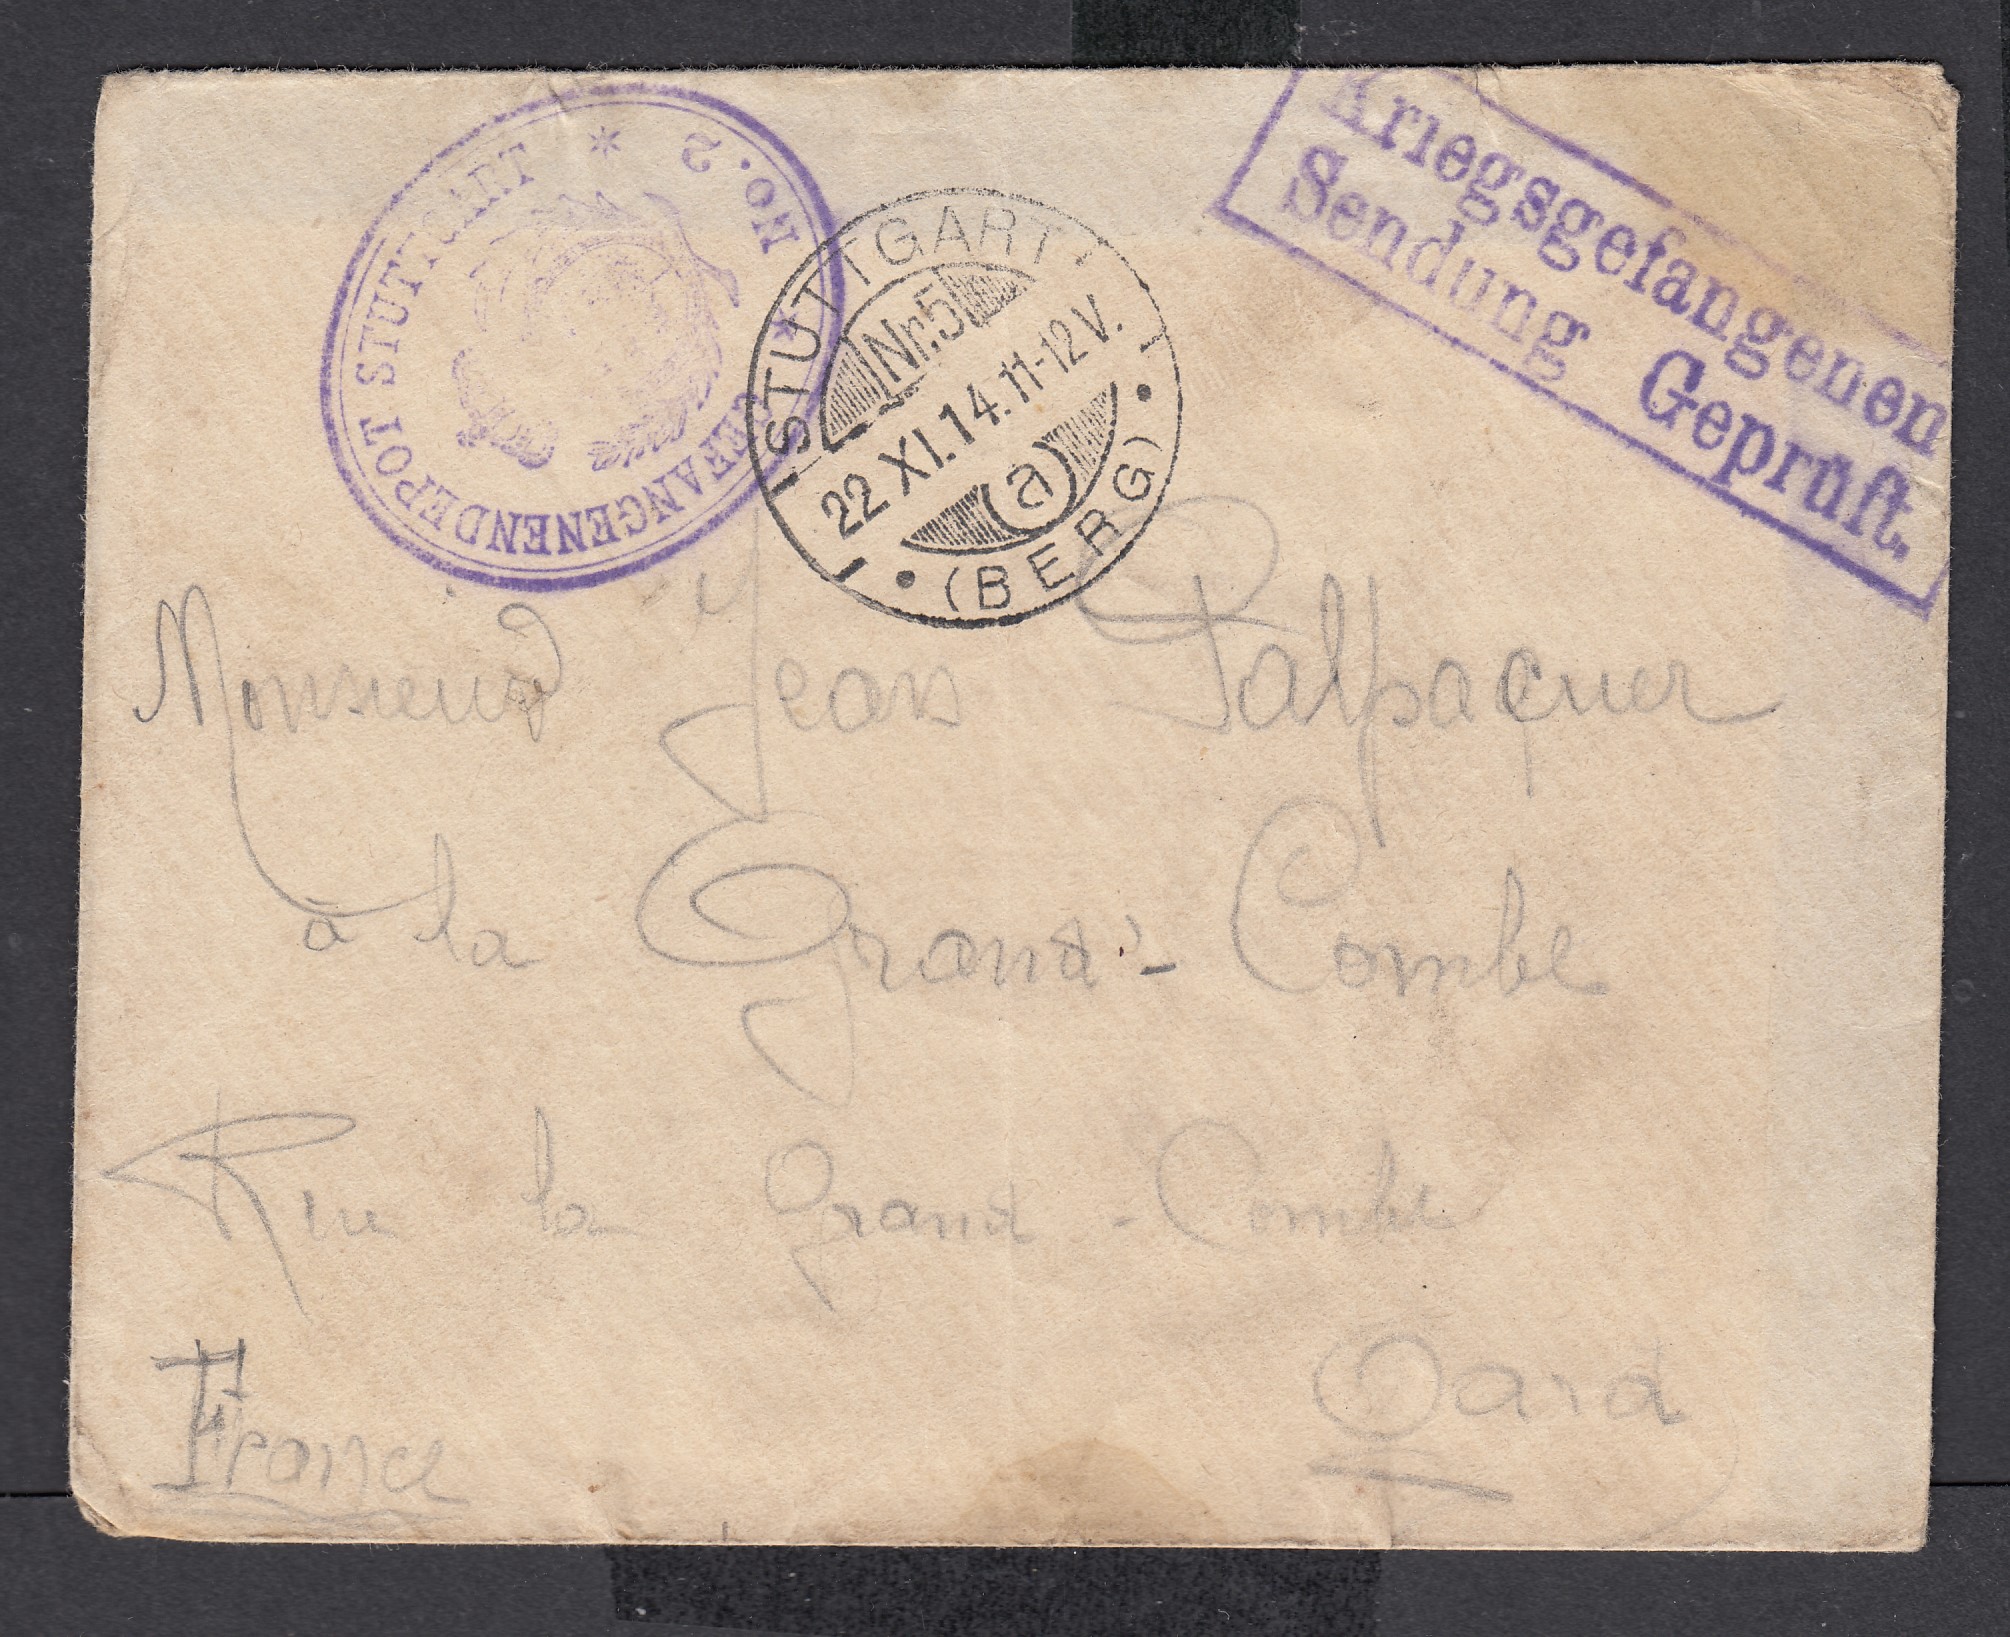 GEFANGENENDEPOT STUTTGART * No. 2 *
STUTTGART
Nr.5
22 XI.14.11-12V.
(a)
(BERG)
Kriegsgefangenen
Sendung Geprüft.
Monsieur Jean Palpacuer
à la Grand'-Combe
Rue la Grand-Combe
Gard
France